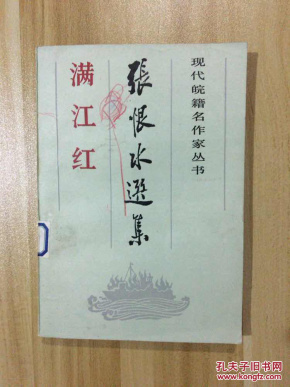 现代皖籍名作家丛书
張恨水選集
满江红
孔夫子旧书网